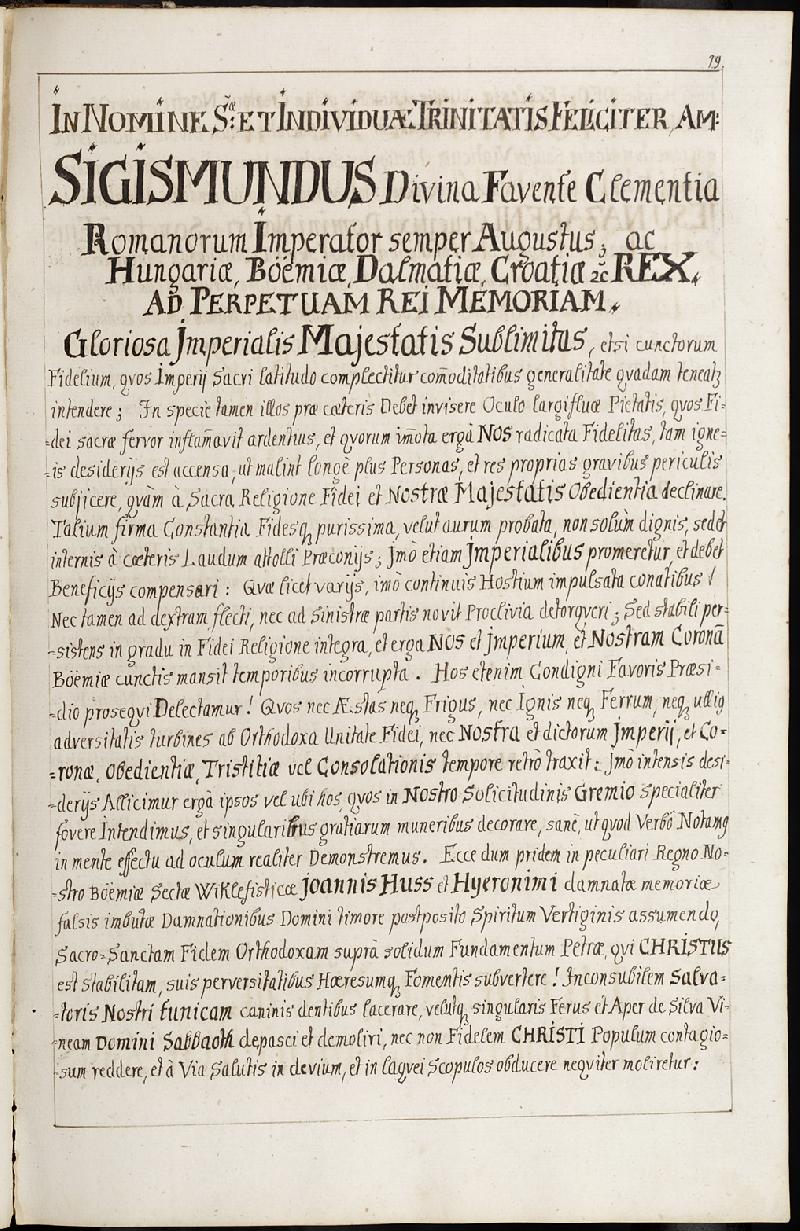 19.
IN NOMINE S:æ ET INDIVIDUÆ TRINITATIS FELICITER AM:
SIGISMUNDUS Divina Favente Clementia
Romanorum Imperator semper Augustus, ac
Hungariæ, Böemiæ, Dalmatiæ, Croatiæ ꝛc REX,
AD PERPETUAM REI MEMORIAM,
Gloriosa Imperialis Majestatis Sublimitas, etsi cunctorum
Fidelium, qvos Imperij Sacri latitudo complectitur com̄oditatibus generalitate qvadam teneatꝫ
intendere; In specie tamen illos præ cœteris Debet invisere Oculo largifluæ Pietatis, qvos Fi-
-dei sacræ fervor inflam̄avit ardentius, et qvorum im̄ota ergà NOS radicata Fidelitas, tam igne-
-is desiderijs est accensa, ut malint longè plus Personas, et res proprias gravibus periculis
subjicere, qvàm à Sacra Religione Fidei et Nostræ Majestatis Obedientia declinare.
Talium firma Constantia Fidesqꝫ purissima, velut aurum probata, non solùm dignis, sed et
internis à cœteris Laudum attolli Præconijs; Imò etiam Imperialibus promeretur et debet
Beneficijs compensari: Qvæ licet varijs, imò continuis Hostium impulsata conatibus!
Nec tamen ad dextram flecti, nec ad Sinistræ partis novit Proclivia detorqveri; Sed stabili per-
-sistens in gradu in Fidei Religione integra, et erga NOS et Imperium, et Nostram Coronā
Böemiæ cunctis mansit temporibus incorrupta. Hos etenim Condigni Favoris Præsi-
-dio proseqvi Delectamur! Qvos nec Æstas neqꝫ Frigus, nec Ignis neqꝫ Ferrum, neqꝫ ullig
adversitatis turbines ab Orthodoxa Unitate Fidei, nec Nostra et dictorum Imperij, et Co-
-ronæ, Obedientiæ, Tristitiæ vel Consolationis tempore retrò traxit: Imò intensis desi-
-derijs Allicimur ergà ipsos vel ubi hos, qvos in Nostro Solicitudinis Gremio Specialiter
fovere Intendimus, et singularibus gratiarum muneribus decorare, sanè, ut qvod Verbō Notamg
in mente effectu ad oculum realiter Demonstremus. Ecce dum pridem in peculiari Regno No-
-stro Böemiæ Sectæ Wiklefisticæ Joannis Huss et Hyeronimi damnatæ memoriæ
falsis imbutæ Damnationibus Domini timore postposito Spiritum Vertiginis assumendo,
Sacro-Sanctam Fidem Orthodoxam suprà solidum Fundamentum Petræ, qvi CHRISTUS
est stabilitam, suis perversitatibus Hœresumqꝫ Fomentis subvertere! Inconsubilem Salva-
-toris Nostri tunicam caninis dentibus lacerare, velutqꝫ singularis Ferus et Aper de Silva Vi-
-neam Domini Sabbaoth depasci et demoliri, nec non Fidelem CHRISTI Populum contagio-
-sum reddere, et à Via Salutis in devium, et in laqvei Scopulos obducere neqviter moliretur: